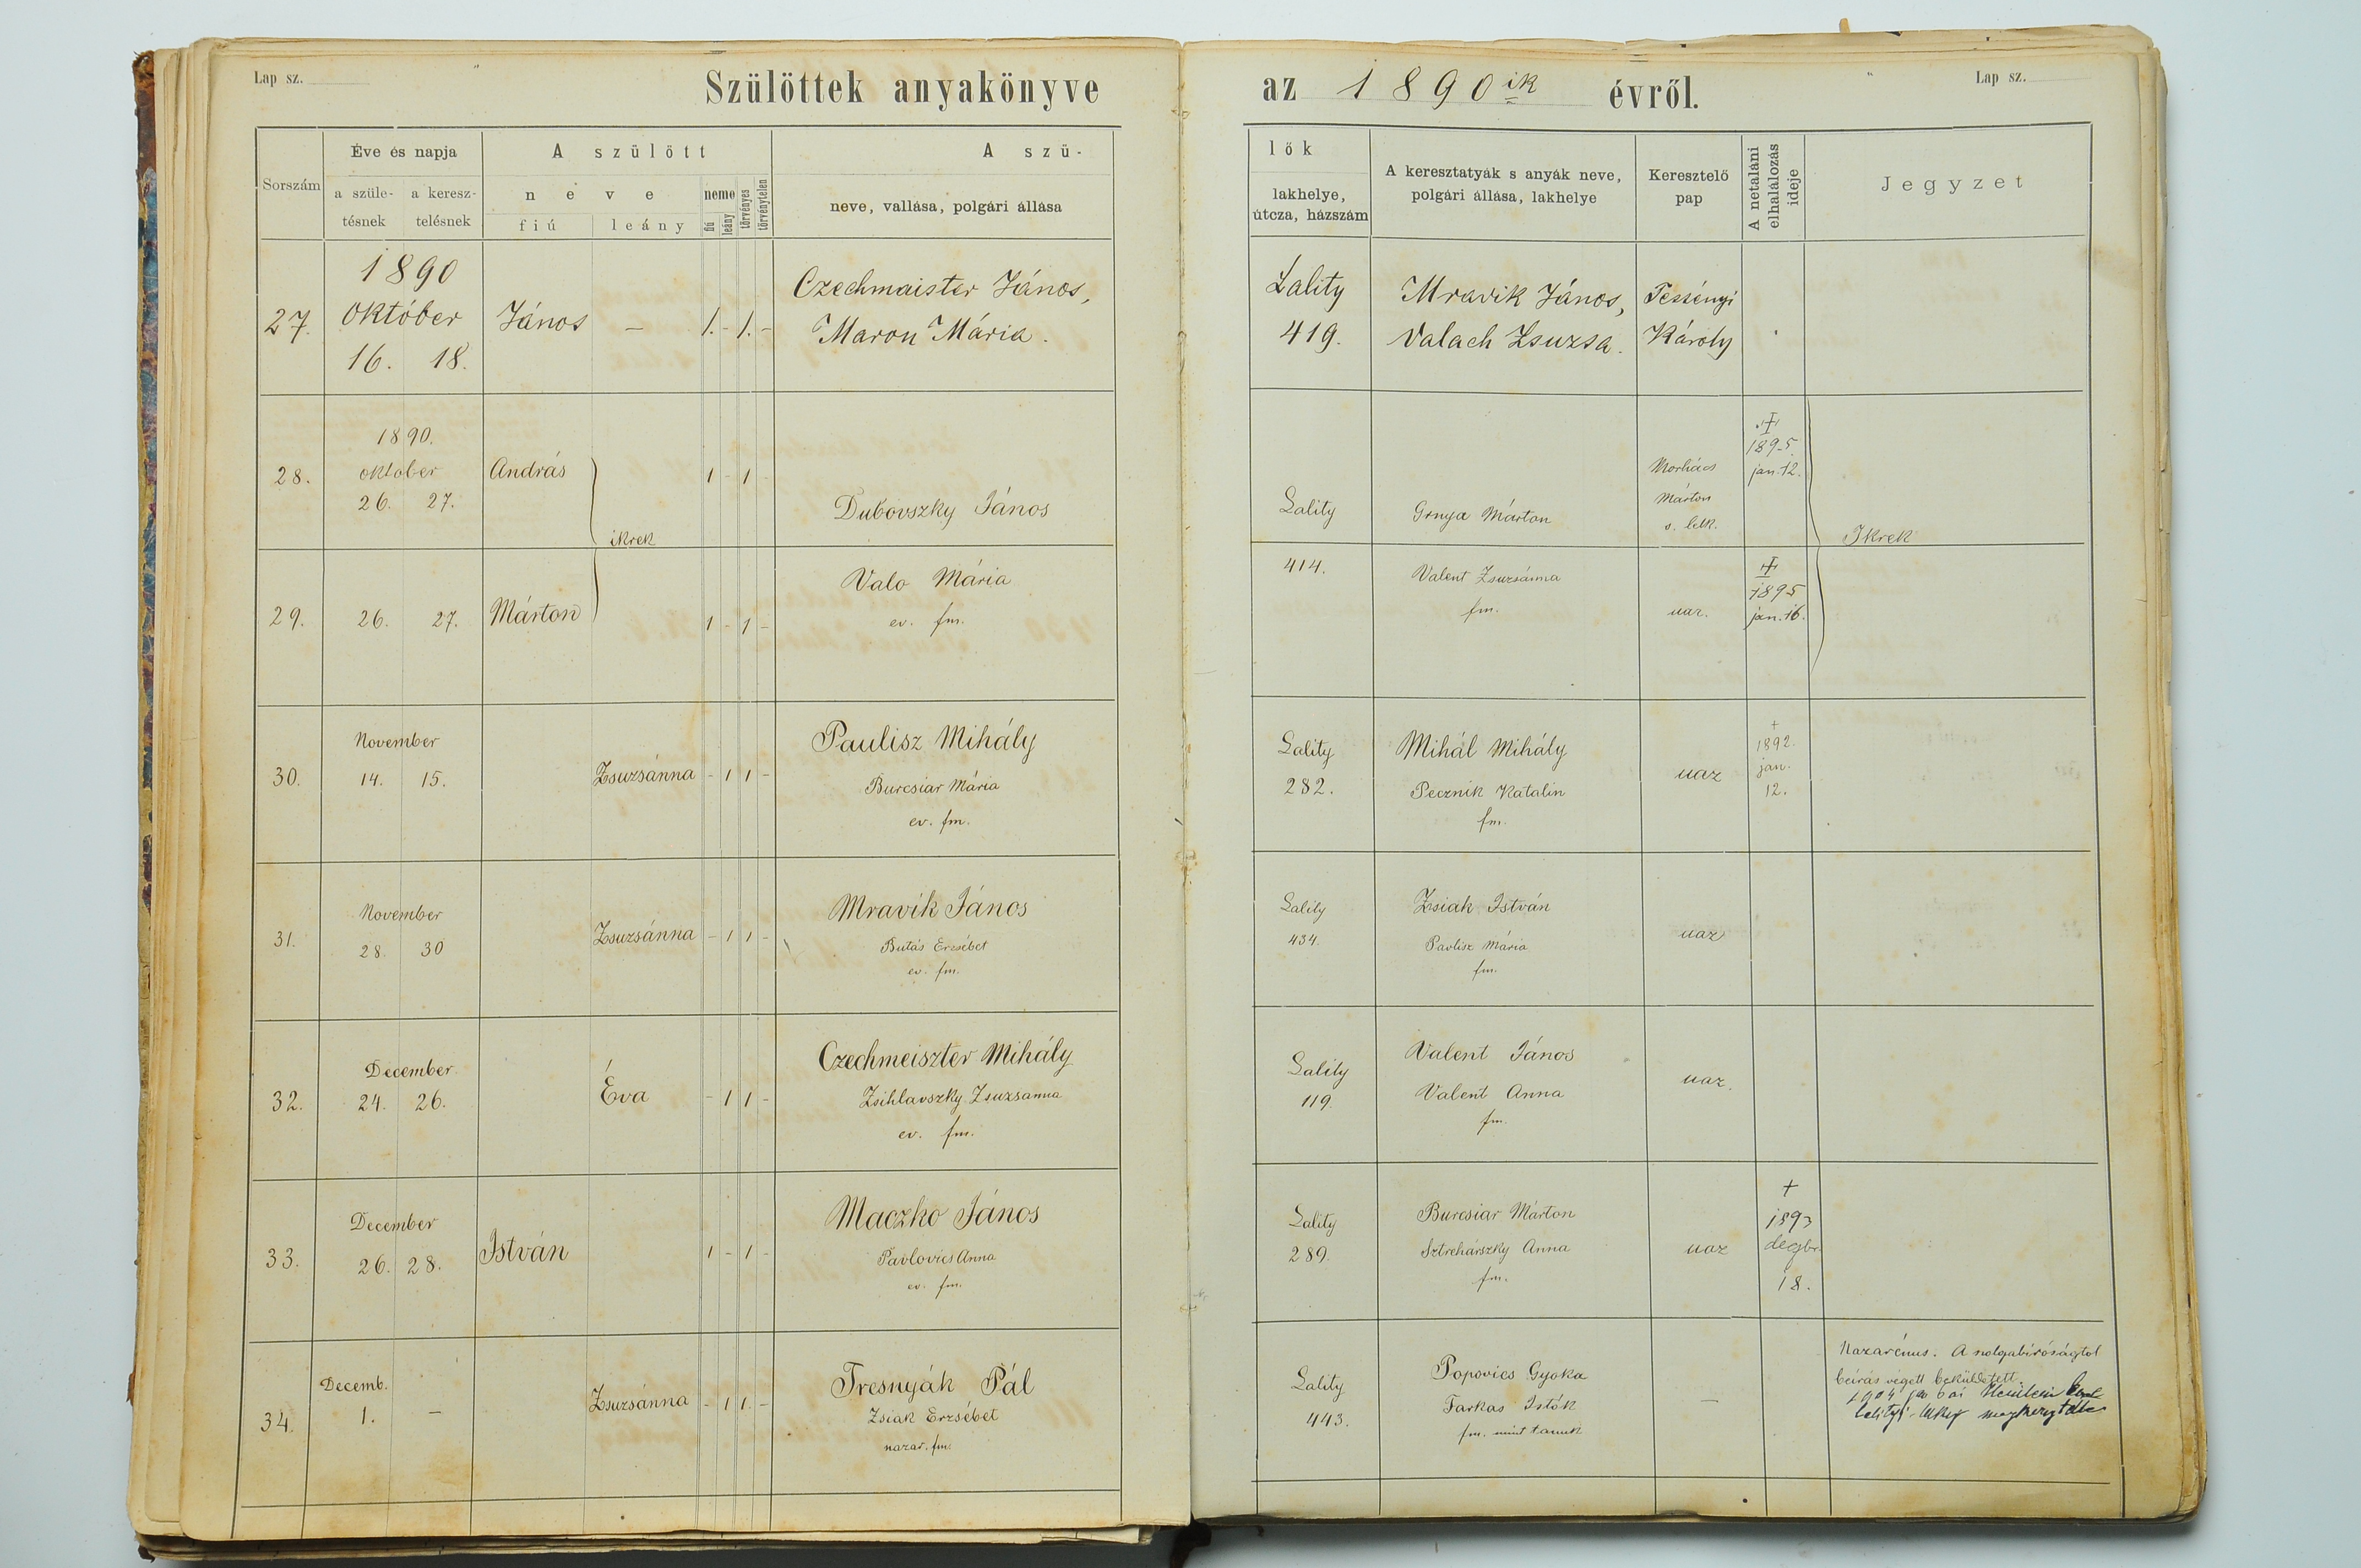 Lap sz.
Szülöttek anyakönyve
az 1890ik évről.
Lap sz.
Sorszám
Éve és napja
a szüle-
tésnek
a keresz-
telésnek
A szülött
neve
fiú
leány
neme
fiú
leány
törvényes
törvénytelen
A szü-
neve, vallása, polgári állása
lők
lakhelye,
útcza, házszám
A keresztatyák s anyák neve,
polgári állása, lakhelye
Keresztelő
pap
A netaláni
elhalálozás
ideje
Jegyzet
27.
1890
október
16. 18.
János
–
1. - 1. -
Czechmaister János,
Maron Mária.
Lality
419.
Mravik János,
Valach Zsuzsa.
Károly
28.
1890.
oktober
26. 27.
András
ikrek
1 - 1
Dubovszky János
Lality
Grnya Márton
Márton
s. lelk.
1895
jan. 12.
Ikrek
29.
26. 27.
Márton
1 - 1 -
Valo Mária
ev. fm.
414.
Valent Zsuzsánna
fm.
uaz.
1895
jan. 16.
30.
November
14. 15.
Zsuzsánna
- 1 1 -
Paulisz Mihály
Burcsiar Mária
ev. fm.
Lality
282.
Mihál Mihály
Pecznik Katalin
fm.
uaz
+
1892.
jan.
12.
31.
November
28. 30
Zsuzsánna
- 1 1 -
Mravik János
Butás Erzsébet
ev. fm.
Lality
434.
Zsiak István
Pavlisz Mária
fm.
uaz
32.
December
24. 26.
Éva
- 1 1 -
Czechmeiszter Mihály
Zsihlavszky Zsuzsanna
ev. fm.
Lality
119.
Valent János
Valent Anna
fm.
uaz.
33.
December
26. 28.
István
1 - 1 -
Maczko János
Pavlovics Anna
ev. fm.
Lality
289.
Burcsiar Márton
Sztrehárszky Anna
fm.
uaz
+
1893
18.
34.
Decemb.
1. –
Zsuzsánna
- 1 1. -
Tresnyák Pál
Zsiak Erzsébet
nazar. fm.
Lality
443.
Popovics Gyoka
Farkas Istók
fm. mint tanuk
–
Nazarénus. A szolgabíróságtol
beírás végett beküldetett.